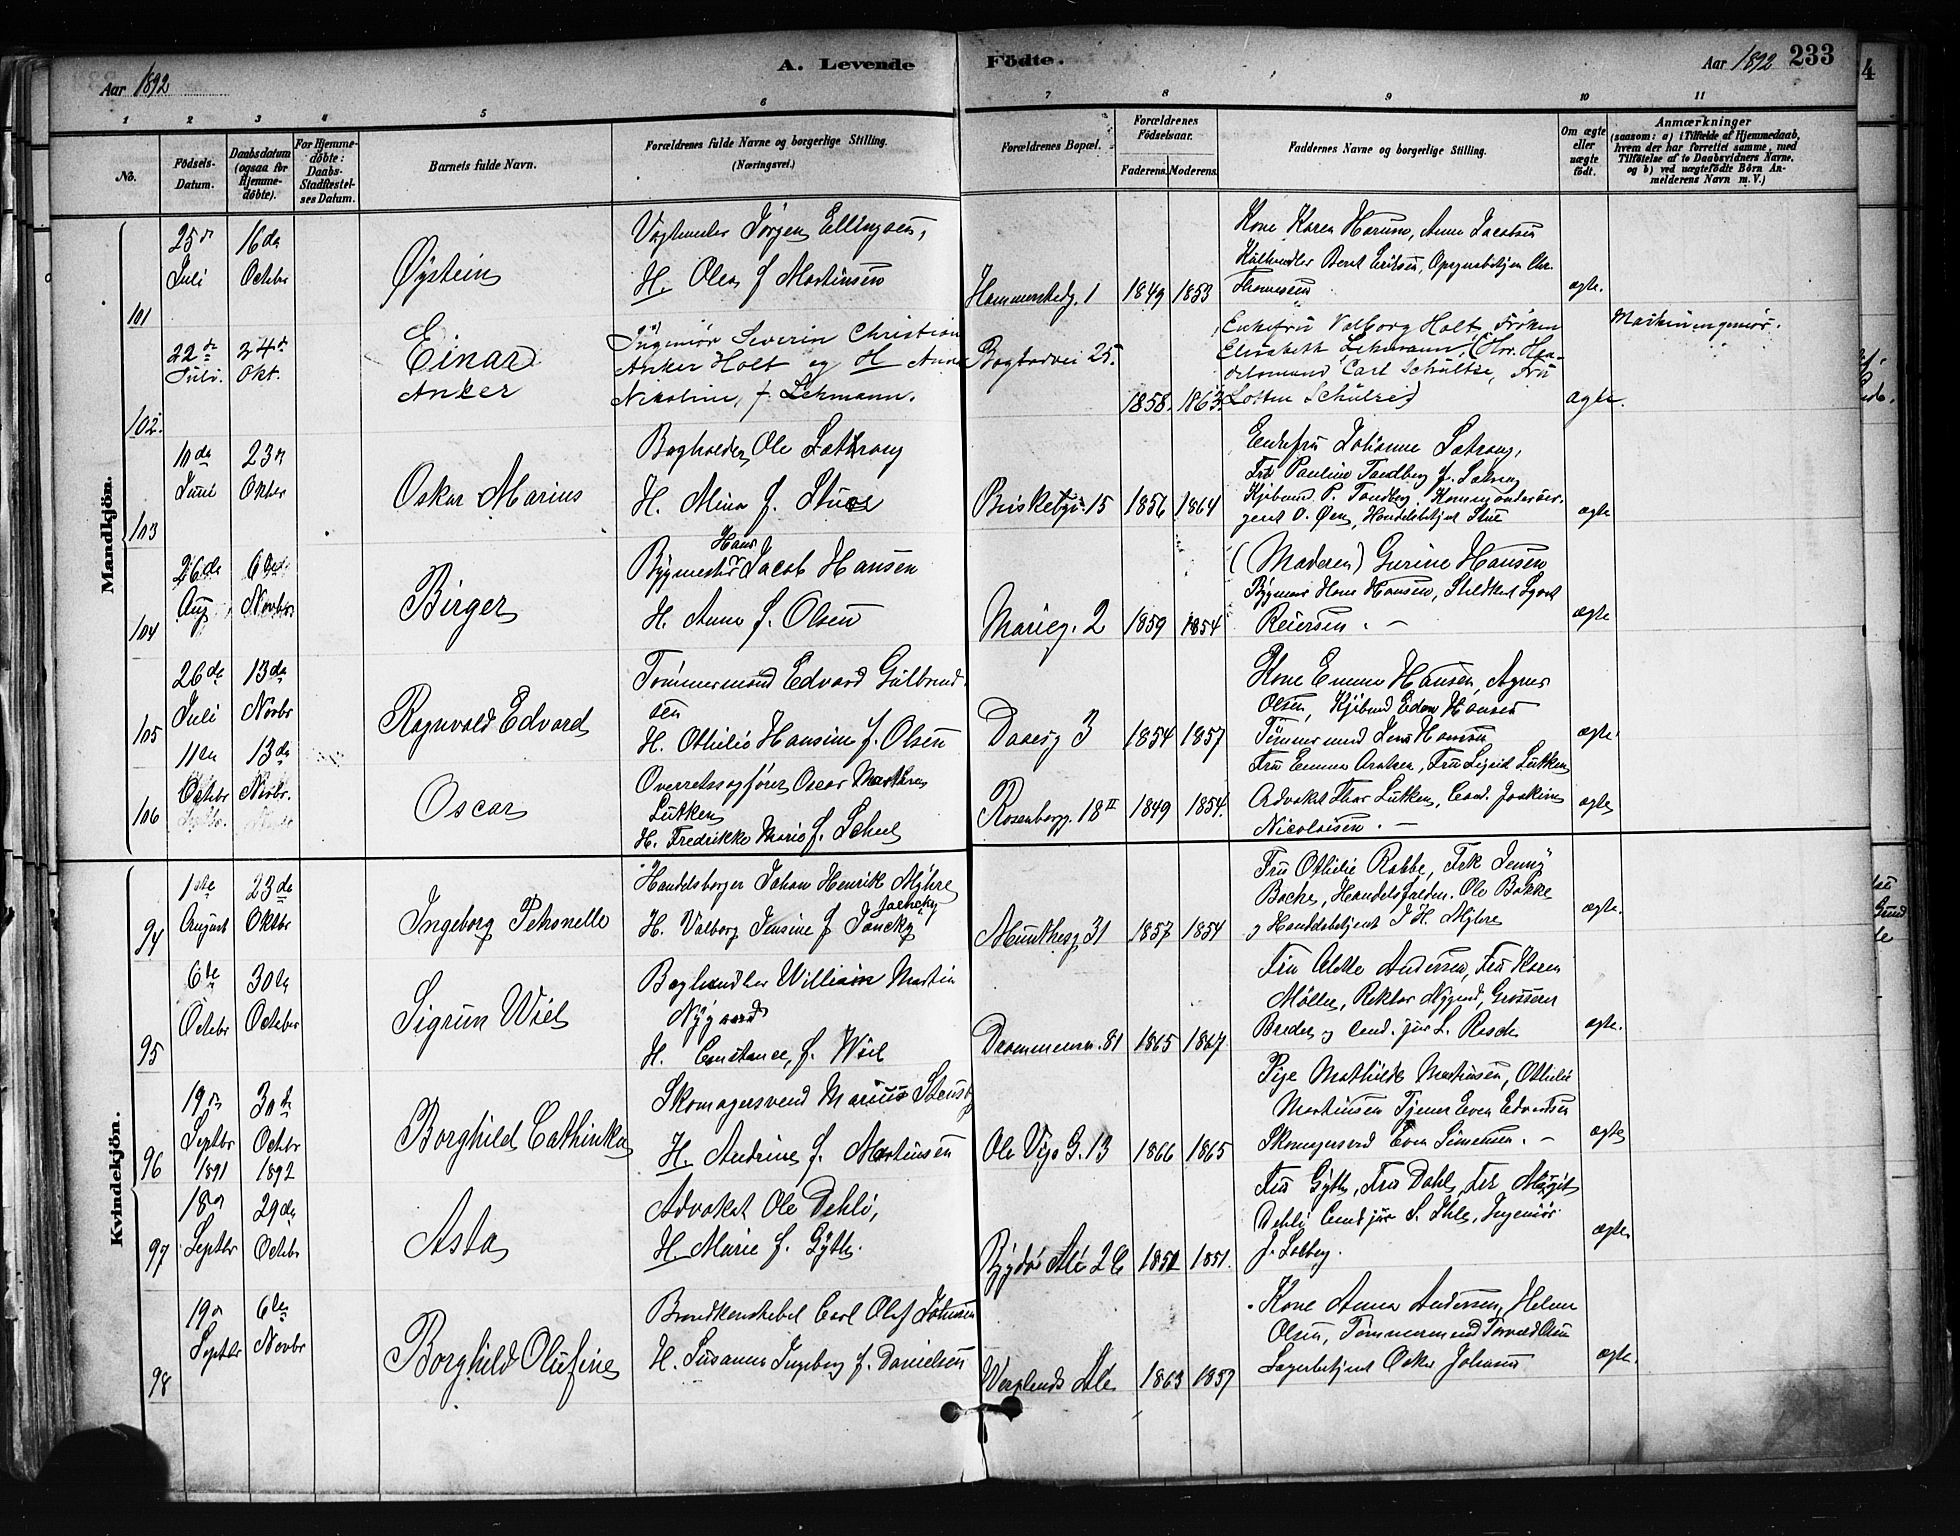 A. Levende Födte.
Aar 1892
Aar 1892 233
4
1 2 3 4 5 6 7 8 9 10 11
No.
Födsels-Datum.
Daabsdatum (ogsaa for Hjemme-döbte).
For Hjemme-döbte: Daabs-Stadfæstel-ses Datum.
Barnets fulde Navn.
Forældrenes fulde Navne og borgerlige Stilling. (Næringsvei.)
Forældrenes Bopæl.
Forældrenes Födselsaar.
Faderens. Moderens.
Faddernes Navne og borgerlige Stilling.
Om ægte eller uægte födt.
Anmærkninger
(saasom: a) i Tilfælde af Hjemmedaab, hvem der har forrettet samme, med Tilföielse af to Daabsvidners Navne, og b) ved uægtefödte Börn An-melderens Navn m. V.)
Mandkjön.
101
25de Juli
16de Octobr
Øystein
Vognmester Jørgen Ellingsen,
H. Olea f Martinsen
Hammerstadg. 1
1849 1853
Kone Karen Hansen, Anne Jacobsen
Kulhandler Bernt Eriksen, Opsynsbetjen Chr.
Thomesen
ægte.
102.
22de Juli.
24de Okt.
Einar
Anker
Ingeniør Severin Christian
Anker Holt og H Anna
Nicoline, f. Lehmann.
Bogstadvei 25.
1858. 1863.
Enkefru Valborg Holt, Frøken
Elisabeth Lehmann, (Hr. Han-
delsmand Carl Schultze, Fru
Lotten Schulze)
ægte.
Maskiningeniør.
103
10de Juni
23de Oktbr
Oskar Marius
Bogholder Ole Sætrang
H. Mina f. Stue
Briskebyv. 15
1856 1864
Enkefru Johanne Sætrang,
Frk Pauline Tandberg f. Sætrang
Kjöbmd. P. Tandberg, Kommandérser-
gent O. Øen, Handelsbetjent Stue
ægte
104
26de Aug.
6te Novbr
Birger
Bygmester Hans Jacob Hansen
H. Anna f. Olsen
Marieg. 2
1859 1854
(Moderen) Gurine Hansen
Bygmester Hans Hansen,
Reiersen. —
ægte
105
26de Juli
13de Novbr
Ragnvald Edvard
Tømmermand Edvard Gulbrand-
sen
H. Othilie Hansine f. Olsen
Daaesg 3
1854 1857
Kone Emma Hansen, Agnes
Olsen, Kjöbmd Edv Hansen
Tømmermand Jens Hansen
ægte.
106
11te Octobr
13de Novbr.
Oscar
Overretssagfører Oscar Marthin
Lütken
H. Fredrikke Marie f. Scheel
Rosenborgg. 18 II
1849 1854.
Fru Emma Aratsen, Fru Sigrid Lütken
Advokat Thor Lütken, Cand. Joakim
Nicolaisen. —
ægte
Kvindekjön.
94
1ste August
23de Oktbr
Ingeborg Petronelle
Handelsborger Johan Henrik Myhre
H. Valborg Jensine f Jancky
Munthesg 31
1857 1854
Fru Othilie Rabbe, Frk Jenny
Bache, Handelsfuldm. Ole Bakke
og Handelsbetjent J H. Myhre
ægte.
95
6te Octobr
30te October
Sigrun Wiel
Boghandler William Martin
Nygaard
H. Constance, f. Wiel
Drammensv. 81
1865 1867
Fru Alette Andersen, Fru Karen
Møller, Rektor Nygaard, Grosserer
Breder og Cand. jur L. Resch
ægte.
96
19de Septbr 1891
30te Octbr 1892
Borghild Cathinka
Skomagersvend Marius Stensby
H. Andrine f. Martinsen
Ole Vigs G. 13
1866 1865
Pige Mathilde Martinsen, Othilie
Martinsen Tjener Even Edvardsen
Skomagersvend Even Simensen. —
ægte
97
18de Septbr
29de Octbr
Asta
Advokat Ole Dehli,
H. Marie f. Gyth.
Bygdø Alé 2 C
1851 1851.
Fru Gyth, Fru Dahl, Frk Margit
Dehli Cand jur S. Ihle, Ingeniør
J. Solberg.
ægte.
98
19de Septbr
6te Novbr
Borghild Olufine
Brandkonstabel Carl Olof Johnsen
H. Susanna Ingeborg f. Danielsen
Vergelands Ale
1863 1857
Kone Anna Andersen, Helene
Olsen, Tømmermand Torvald Olsen
Lagerbetjent Oskar Johnsen
ægte.